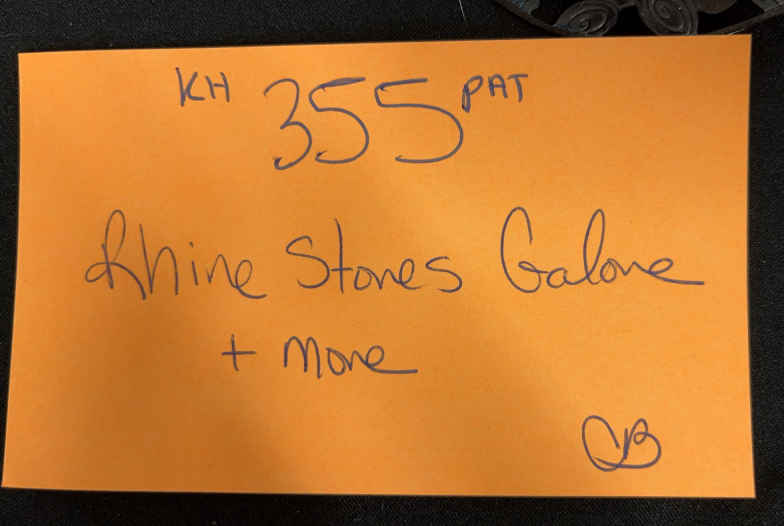 KH 355 PAT
Rhine Stones Galore
+ more
CB